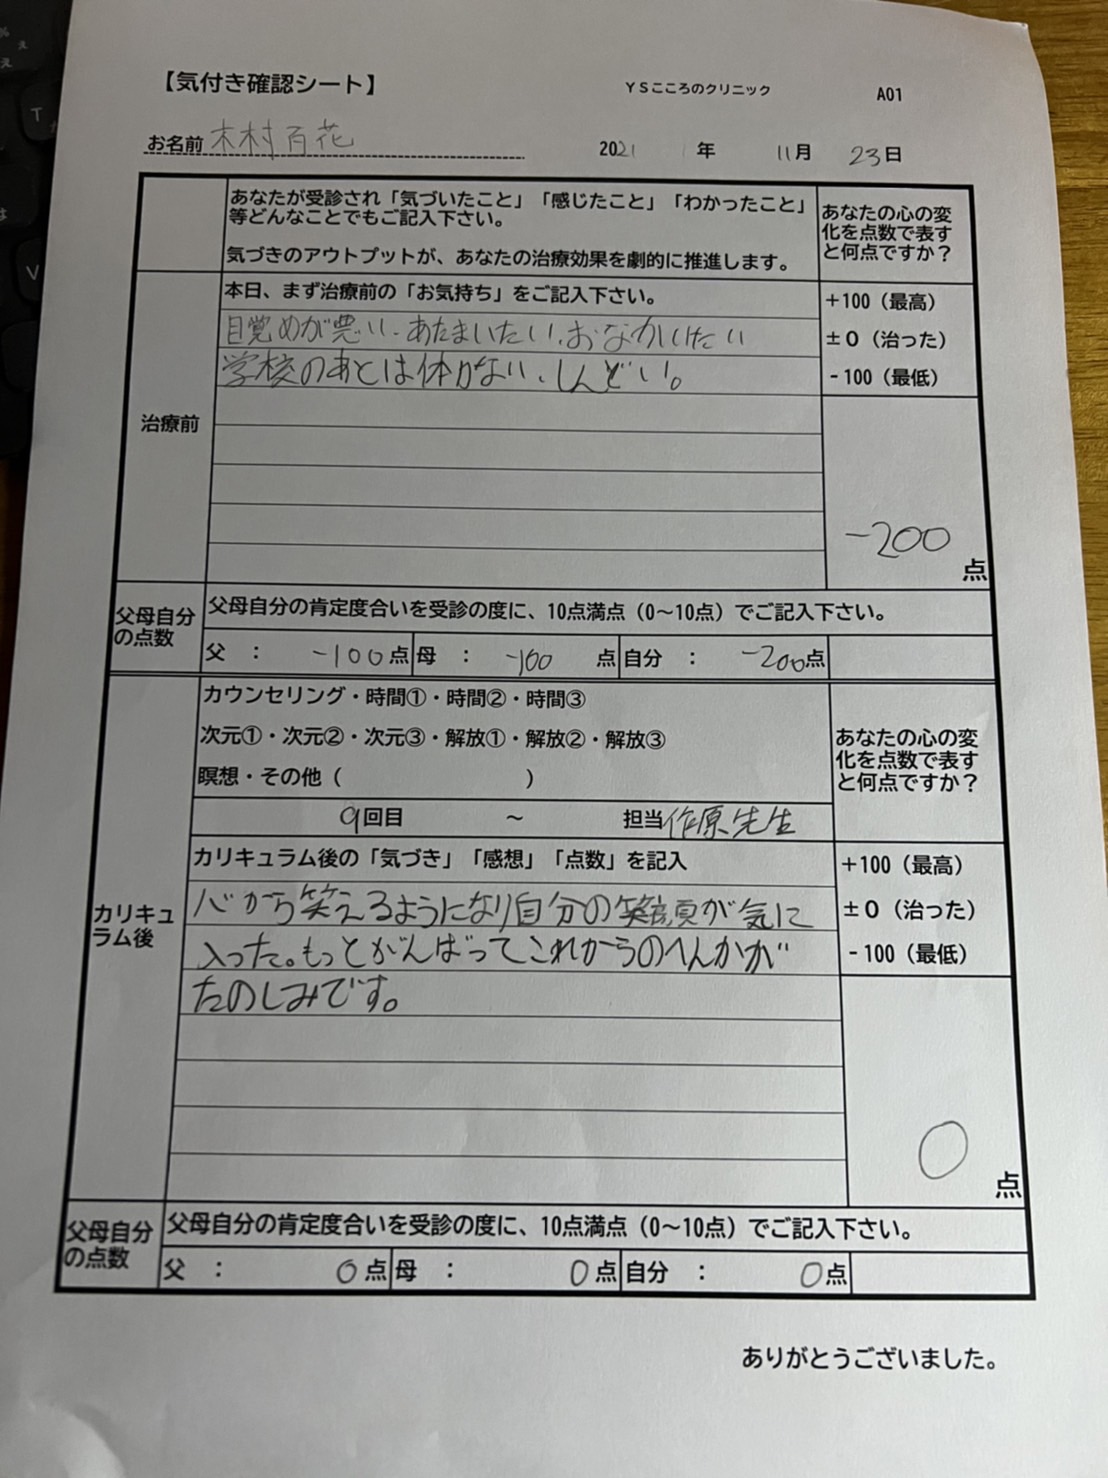 【気付き確認シート】
YSこころのクリニック
A01
お名前 木村百花
2021 年 11月 23日
あなたが受診され「気づいたこと」「感じたこと」「わかったこと」
等どんなことでもご記入下さい。
気づきのアウトプットが、あなたの治療効果を劇的に推進します。
あなたの心の変
化を点数で表す
と何点ですか？
治療前
本日、まず治療前の「お気持ち」をご記入下さい。
目覚めが悪い、あたまいたい、おなかいたい
学校のあとは体がない、しんどい。
+100（最高）
±0（治った）
-100（最低）
-200
点
父母自分
の点数
父母自分の肯定度合いを受診の度に、10点満点（0～10点）でご記入下さい。
父 ： -100点 母 ： -100 点 自分 ： -200点
カリキュ
ラム後
カウンセリング・時間①・時間②・時間③
次元①・次元②・次元③・解放①・解放②・解放③
瞑想・その他（ ）
9回目 ～ 担当 作原先生
あなたの心の変
化を点数で表す
と何点ですか？
カリキュラム後の「気づき」「感想」「点数」を記入
心から笑えるようになり自分の笑顔が気に
入った。もっとがんばってこれからのへんかが
たのしみです。
+100（最高）
±0（治った）
-100（最低）
0
点
父母自分
の点数
父母自分の肯定度合いを受診の度に、10点満点（0～10点）でご記入下さい。
父 ： 0点 母 ： 0点 自分 ： 0点
ありがとうございました。